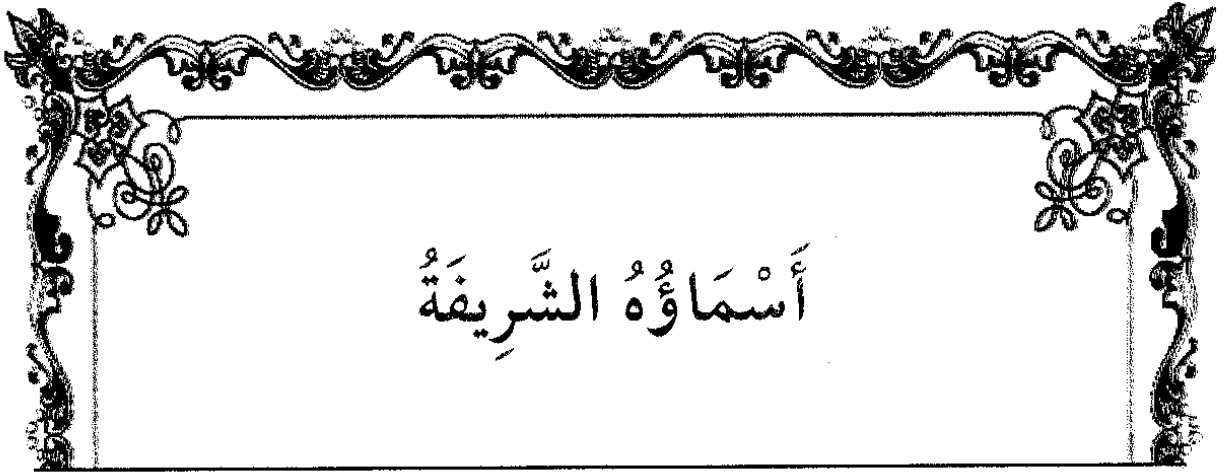 أَسْمَاؤُهُ الشَّرِيفَةُ